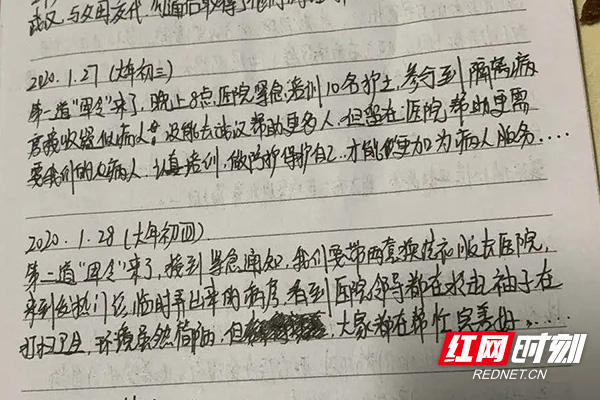 武汉与父母交代,沟通后取得了他们的
2020.1.27(大年初三)
第一道“军令”来了,晚上8点,医院紧急培训10名护士,参与到隔离病
房接收疑似病人。没能去武汉帮助更多人,但留在医院帮助更需
要我们的病人,认真培训,做防护保护自己,才能更加为病人服务....
2020.1.28(大年初四)
第二道“军令”来了,接到紧急通知,我们要带两套换洗衣服去医院,
来到发热门诊,临时弄出来的病房,看到医院领导都在挽起袖子在
打扫卫生,环境虽然简陋,但,大家都在帮忙完善好.....
红网时刻
REDNET.CN